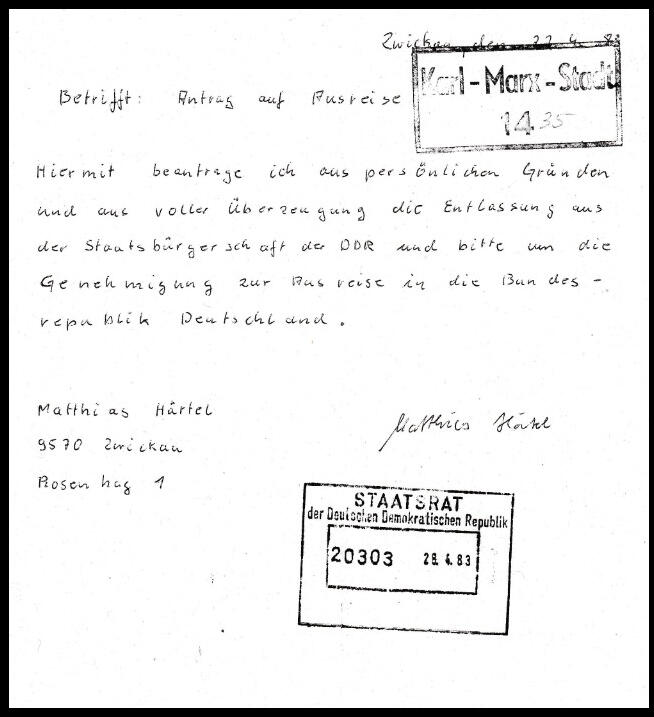 Zwickau, den 22.4.83
Karl-Marx-Stadt
14 35
Betrifft: Antrag auf Ausreise
Hiermit beantrage ich aus persönlichen Gründen
und aus voller Überzeugung die Entlassung aus
der Staatsbürgerschaft der DDR und bitte um die
Genehmigung zur Ausreise in die Bundes-
republik Deutschland.
Matthias Härtel
9570 Zwickau
Rosenhag 1
Matthias Härtel
STAATSRAT
der Deutschen Demokratischen Republik
20303 28.4.83